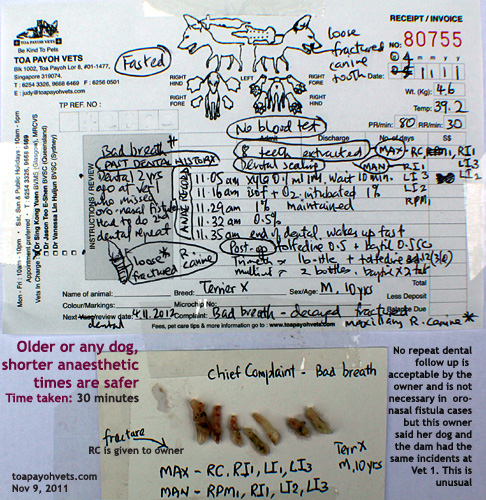 RECEIPT / INVOICE
Be Kind To Pets
TOA PAYOH VETS
Blk 1002, Toa Payoh Lor 8, #01-1477,
Singapore 319074.
T | 6254 3326, 9668 6469 F | 6256 0501
E | judy@toapayohvets.com
Fasted
loose
fractured
canine
tooth
NO: 80755
Date:
Wt.(Kg): 4.6
Temp: 39.2
PR/MIN: 80 RR/MIN 30
RIGHT HIND
RIGHT FORE
LEFT
RIGHT HIND
RIGHT FORE
TP REF. NO:
No blood test
Admit
Discharge
No of days
S$
Mon - Fri: 10am - 9pm, Sat, Sun & Public Holidays: 10am - 5pm
Appointment preferred - T 6254 3326, 9668 6469
Vets In Charge
Dr Sing Kong Yuen BVMS (Glasgow), MRCVS
Dr Jason Teo
BVSC (Queensland)
Dr Vanessa Lin Huijun BVSC (Sydney)
INSTRUCTIONS / REVIEW
Bad breath *
PAST DENTAL HISTORY
Dental 2 yrs
ago at vet 1
who missed
oro-nasal fistula
Had to do 2nd
dental repeat
loose
fractured
R. canine
8 teeth extracted
Dental scaling
MAX - RC, RI1
LI
LI3
MAN - RPM1
RI1
LI2
11.05 am
wait 10 min.
11.16 am iso + O2. intubated 1%
11.29 am 1% maintained
11.32 am 0.5%
11.35 am end of dental wakes up fast
Post-op tolfedine 0.5 + baytril 0.5 SC
= 2 bottles.
Name of animal:
Breed: Terrier X
Sex/Age: M, 10 yrs
Total
Less Deposit
Balance Due
Colour/Markings:
Microchip No:
Next
dental 4.11.2012
Complaint: Bad breath - decayed fractured
maxillary R. canine *
Fees, pet care tips & more information go to : www.toapayohvets.com
Older or any dog,
shorter anaesthetic
times are safer
Time taken: 30 minutes
Chief Complaint - Bad breath
fracture
RC is given to owner
Terr X
M, 10 yrs
MAX - RC, RI1, LI, LI3
MAN - RPM1, RI1, LI2, LI3
No repeat dental
follow up is
acceptable by the
owner and is not
necessary in oro-
nasal fistula cases
but this owner
said her dog and
the dam had the
same incidents at
Vet 1. This is
unusual
toapayohvets.com
Nov 9, 2011